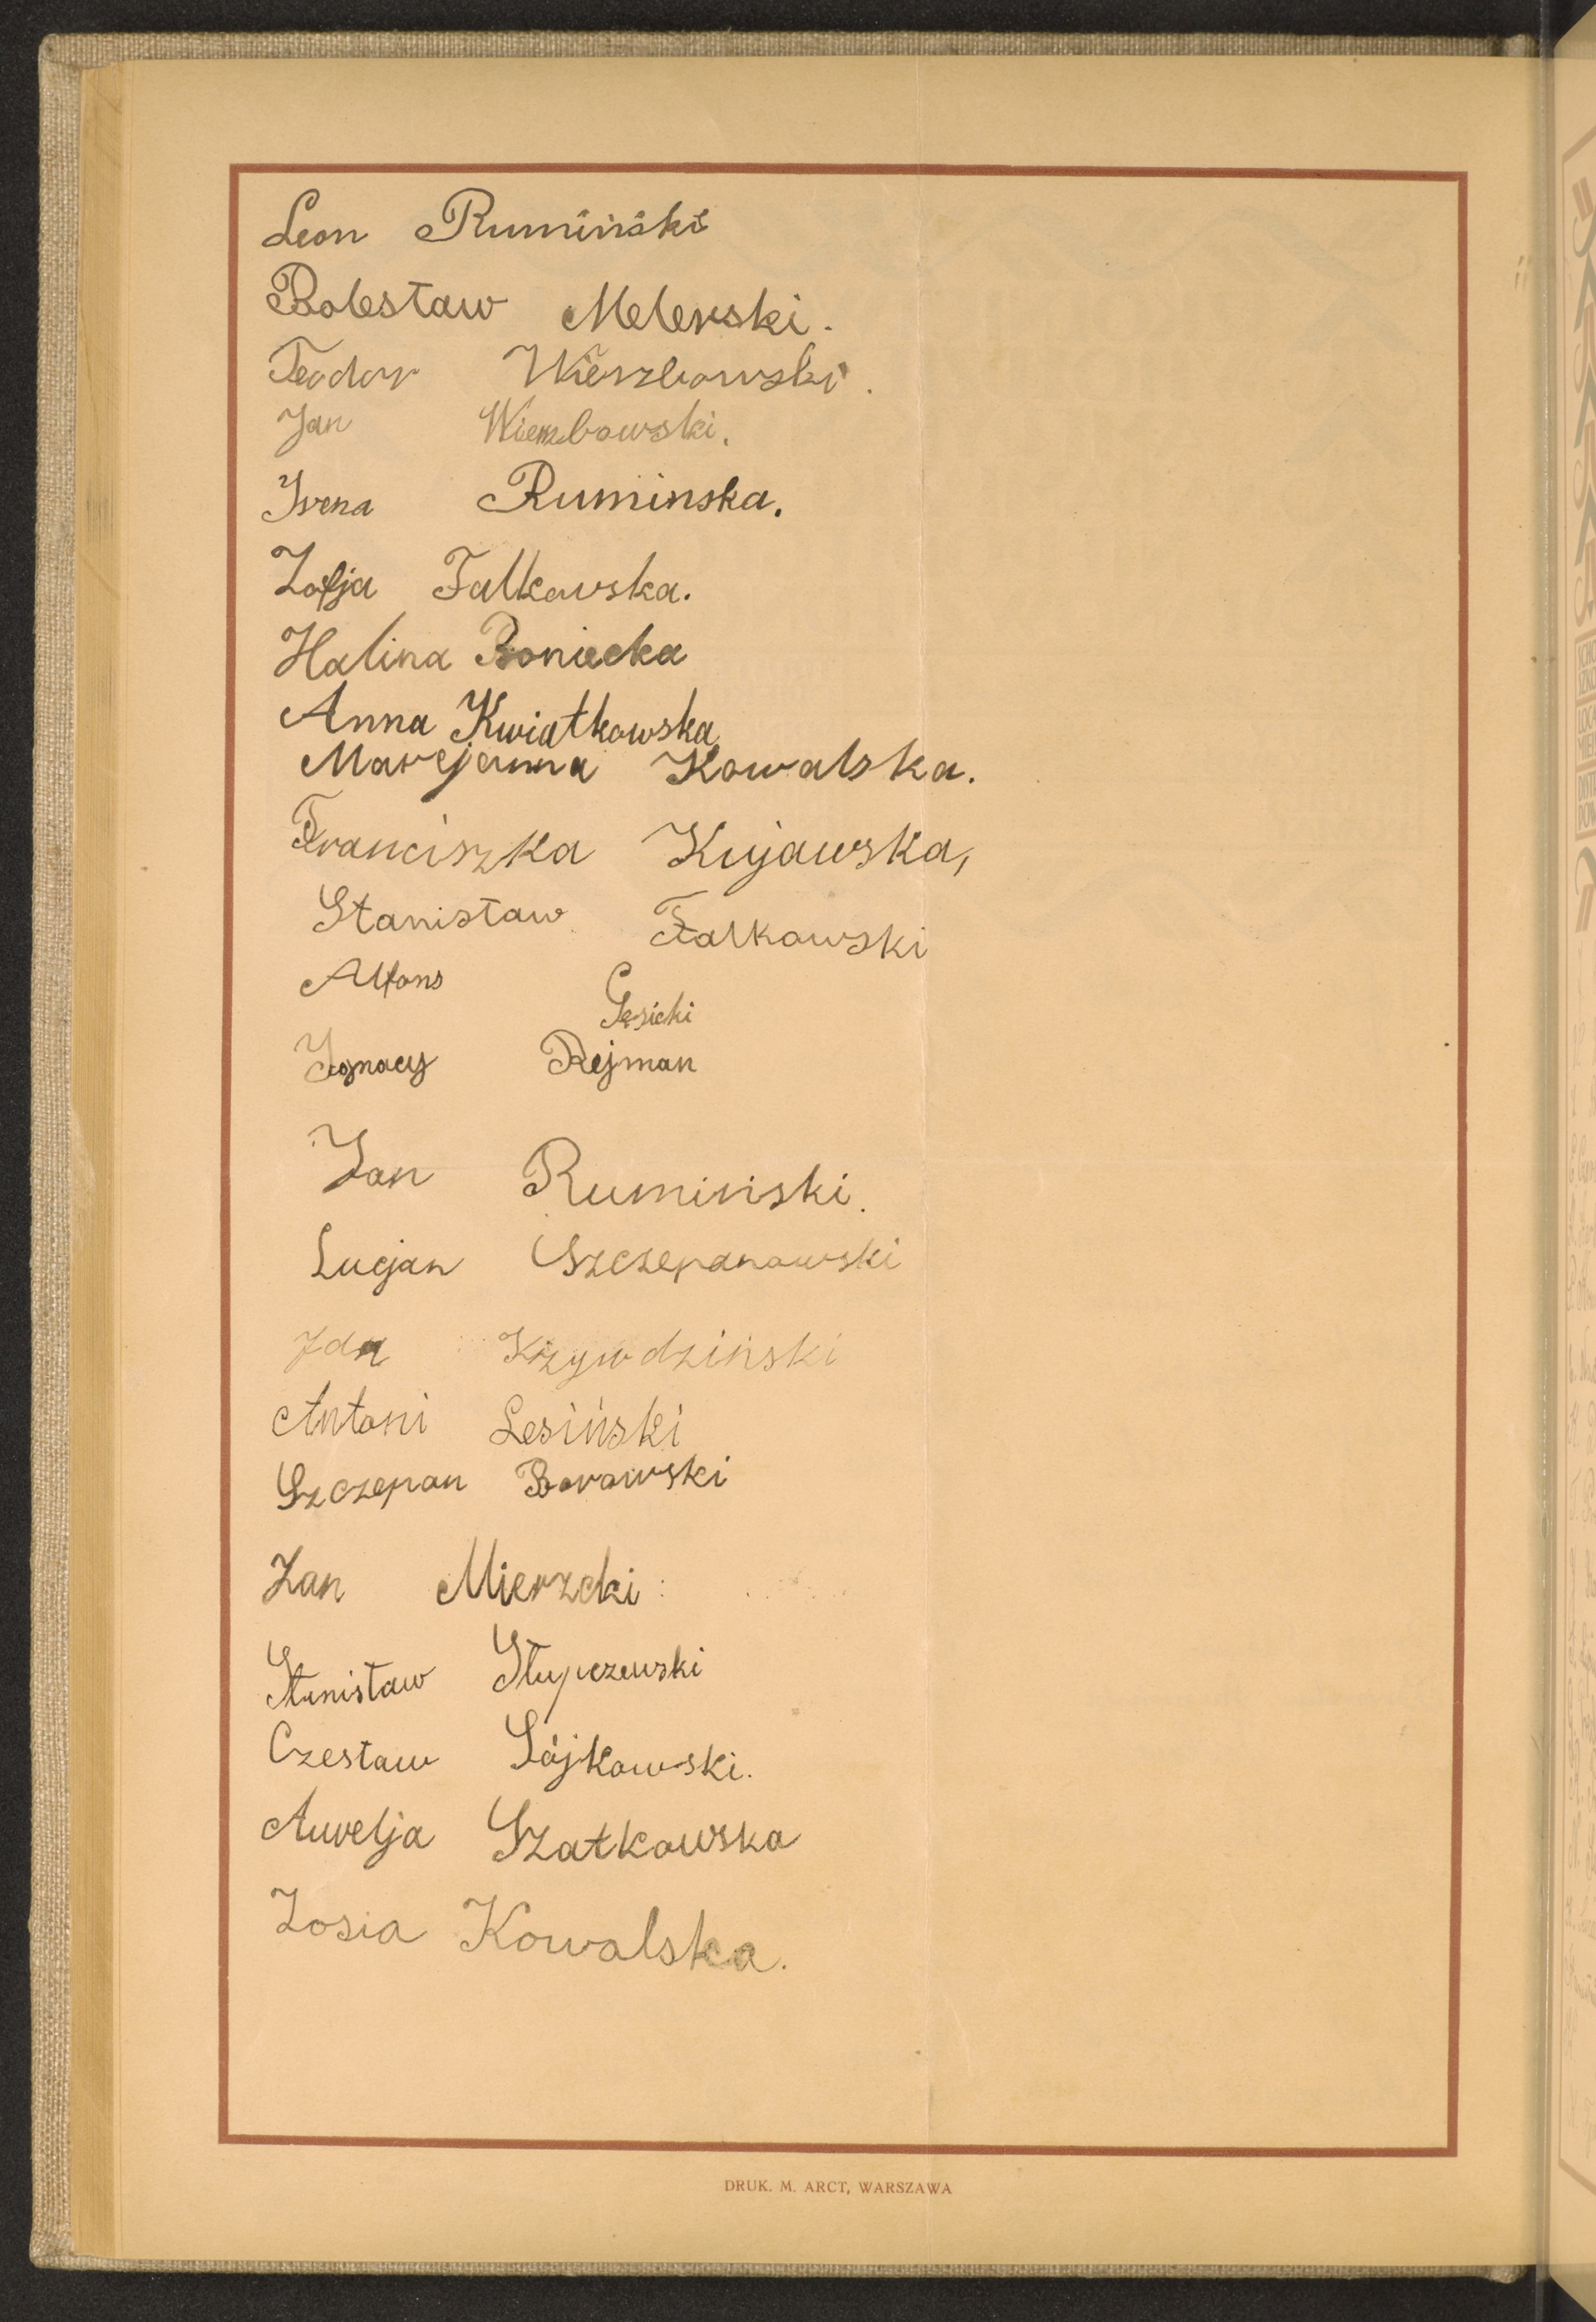 Leon Rumiński
Bolesław Melerski.
Teodor Wierzbowski.
Jan Wierzbowski.
Irena Ruminska.
Zofja Falkowska.
Halina Boniecka
Anna Kwiatkowska
Marejanna Kowalska.
Franciszka Kujawska,
Stanisław Falkowski
Alfons Gęsicki
Ignacy Rejman
Jan Rumiński.
Lucjan Szczepanowski
Jan Krzywdziński
Antoni Lesiński
Szczepan Borowski
Jan Mierzcki
Stanisław Słupczewski
Czesław Sójkowski.
Aurelja Szatkowska
Zosia Kowalska.
DRUK. M. ARCT, WARSZAWA